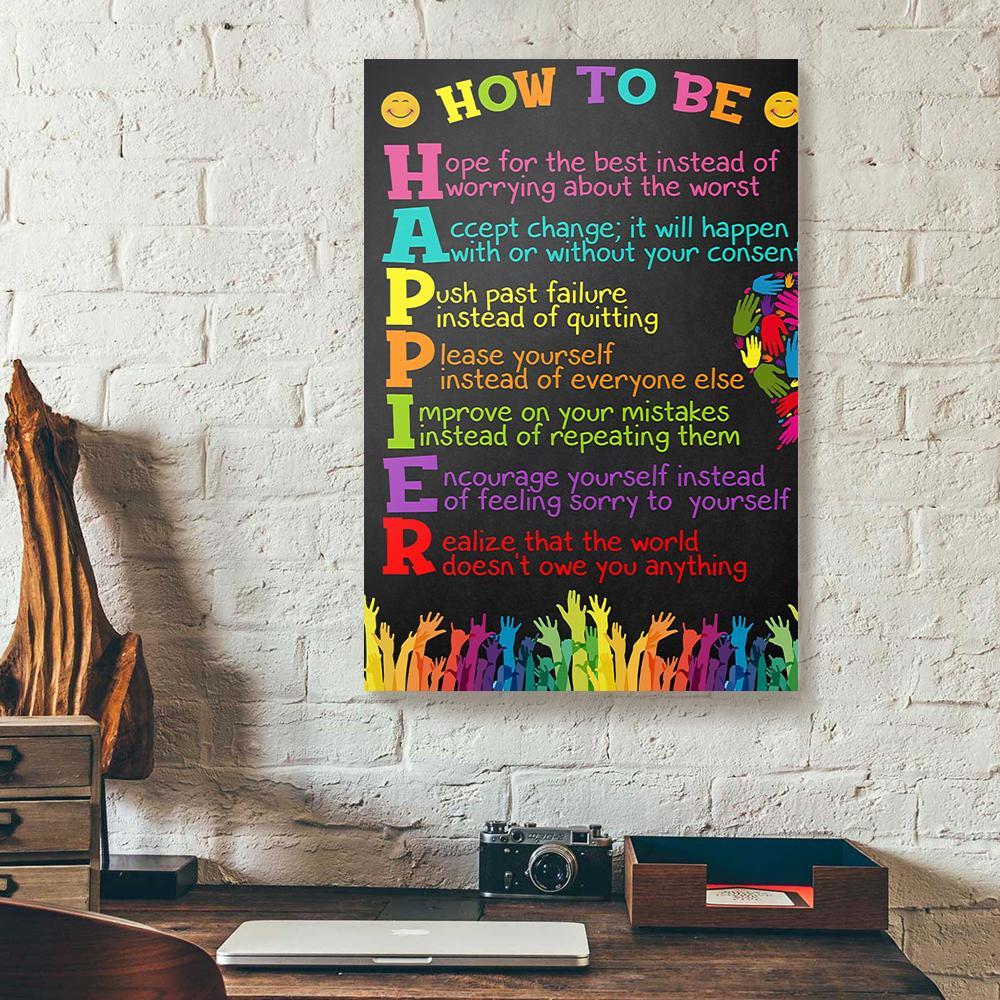 HOW TO BE
Hope for the best instead of
worrying about the worst
Accept change; it will happen
with or without your consent
Push past failure
instead of quitting
Please yourself
instead of everyone else
Improve on your mistakes
instead of repeating them
Encourage yourself instead
of feeling sorry to yourself
Realize that the world
doesn't owe you anything